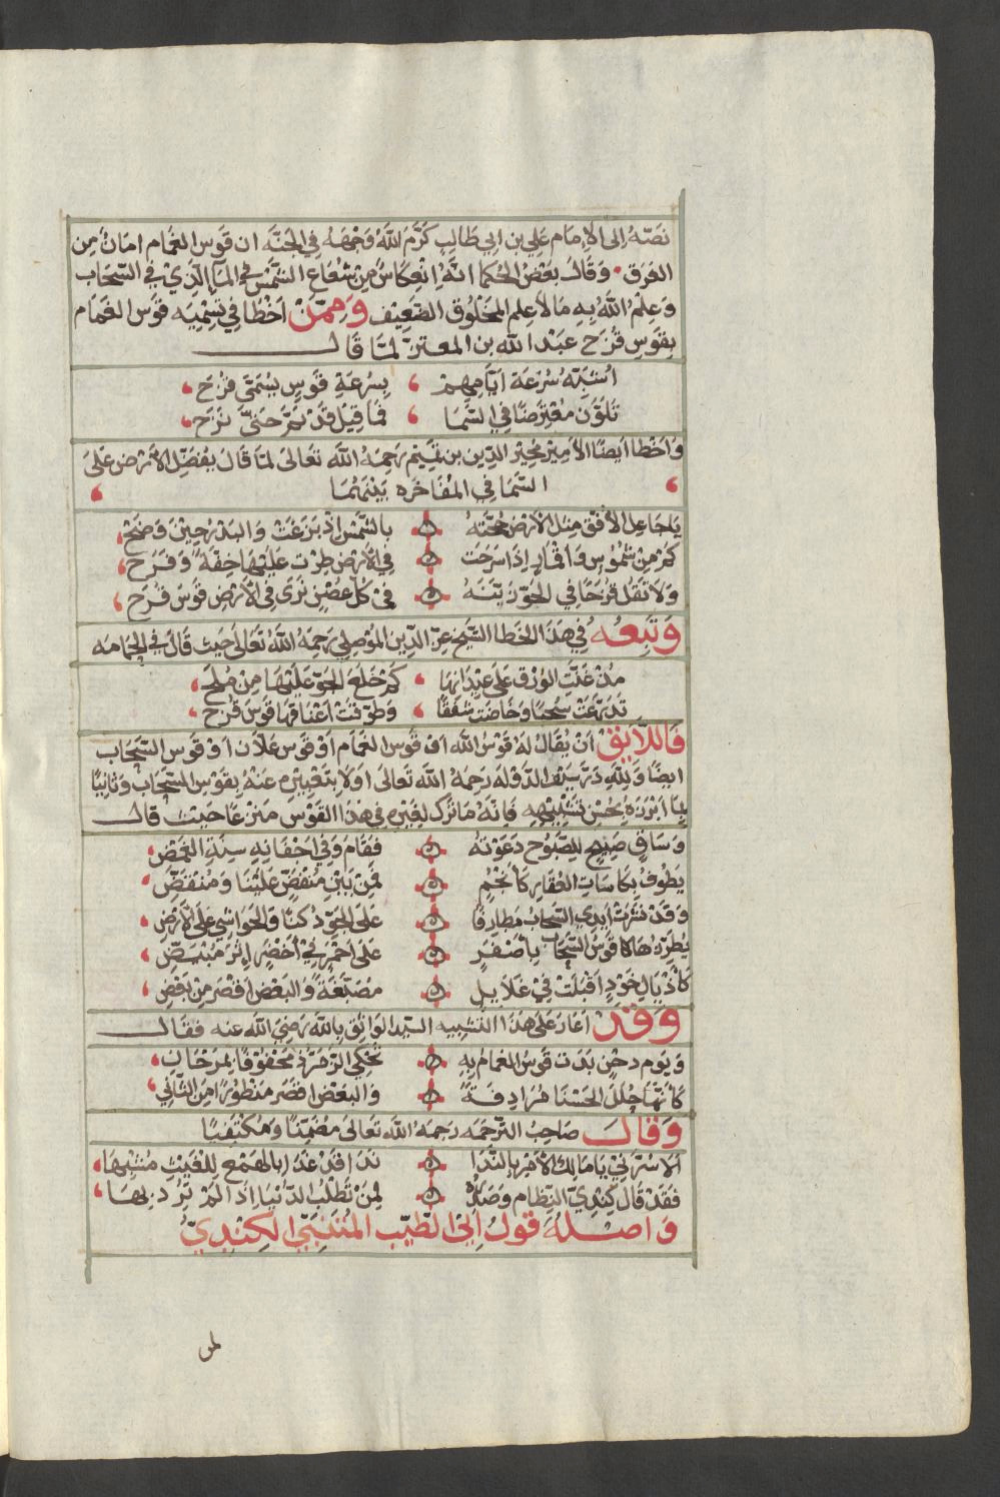 نصّه إلى الإمام علي بن ابي طالب كرّم الله وجهه في الجنّه ان قوس الغمام امان من
الغرق وقال بعض الحكما انّه انعكاس من شعاع الشمس في الما الذي في السّحاب
وعلم الله به ما لا علم المخلوق الضعيف وممّن اخطا في تسميه قوس الغمام
بقوس قزح عبد الله بن المعتز لمّا قال
اشبّه سُرعة ايّامهم بسرعة قوس يسمّى قزح
تلوّن معترضا في السّما فما قيل قد تمّ حتّى نزح
واخطا ايضا الامير مجير الدّين بن تميم رحمه الله تعالى لمّا قال يفضّل الارض على
السّما في المفاخره بينهما
يا جاعل الأفق مثل الأرض بالشّمس إذ بزغت والبدر حين وضح
كم من شموس واقمار إذا سرحت في الأرض طرت عليها خفّة وفرح
ولا تقل قزحا في الجوّ زيّنه في كلّ غصن نرى في الأرض قوس قزح
وتبعه في هذا الخطا الشّيخ عزّ الدّين الموصلي رحمه الله تعالى حيث قال في الحمامه
مذ غنّت الورق على عيدانها كم خلع الجوّ عليها من ملح
تدرّعت سحبا وخاضت شفقا وطوّقت اعناقها قوس قزح
فاللايق أن يقال له قوس الله او قوس الغمام او قوس علان او قوس السّحاب
ايضا ولله درّ سيف الدّوله رحمه الله تعالى اولا بتعبيره عنه بقوس السّحاب وثانيا
بما ابرزه بحسن تشبيهه فانّه ما ترك لغيره في هذا القوس منزعا حيث قال
وساق صبيح للصّبوح دعوته فقام وفي اجفانه سنة الغمض
يطوف بكاسات العقار كأنجم فمن بين منفضّ علينا ومنقضّ
وقد نشرت ايدي السّحاب مطارفا على الجوّ دكنا والحواشي على الأرض
يطرّزها قوس السّحاب باصفر على احمر في أخضر إثر مبيضّ
كأذيال خود اقبلت في غلايل مصبّغة والبعض اقصر من بعض
وقد اغار على هذا التّشبيه السّيد الواثق بالله رضي الله عنه فقال
ويوم دجن بدت قوس الغمام به تحكي الزّمرّد محفوفا بمرجان
كأنّها حلل الحسنا مرادفة والبعض اقصر منظورا من الثّاني
وقال صاحب التّرجمه رحمه الله تعالى مضمّنا ومكتفيا
فقد قال كندي النظام لمن تطلب الدّنيا اذا لم ترد بها
واصله قول ابي الطّيّب المتنبّي الكندي
لمن